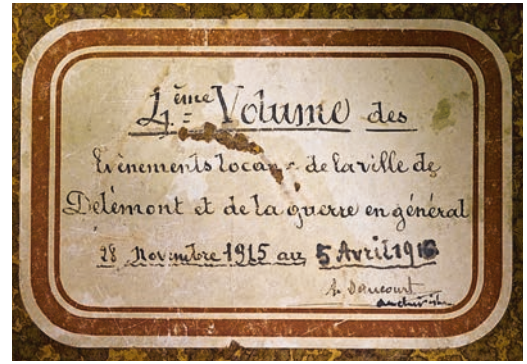 4ème Volume des
Evènements locaux de la ville de
Delémont et de la guerre en général
28 Novembre 1915 au 5 Avril 1916
A. Daucourt
archiviste